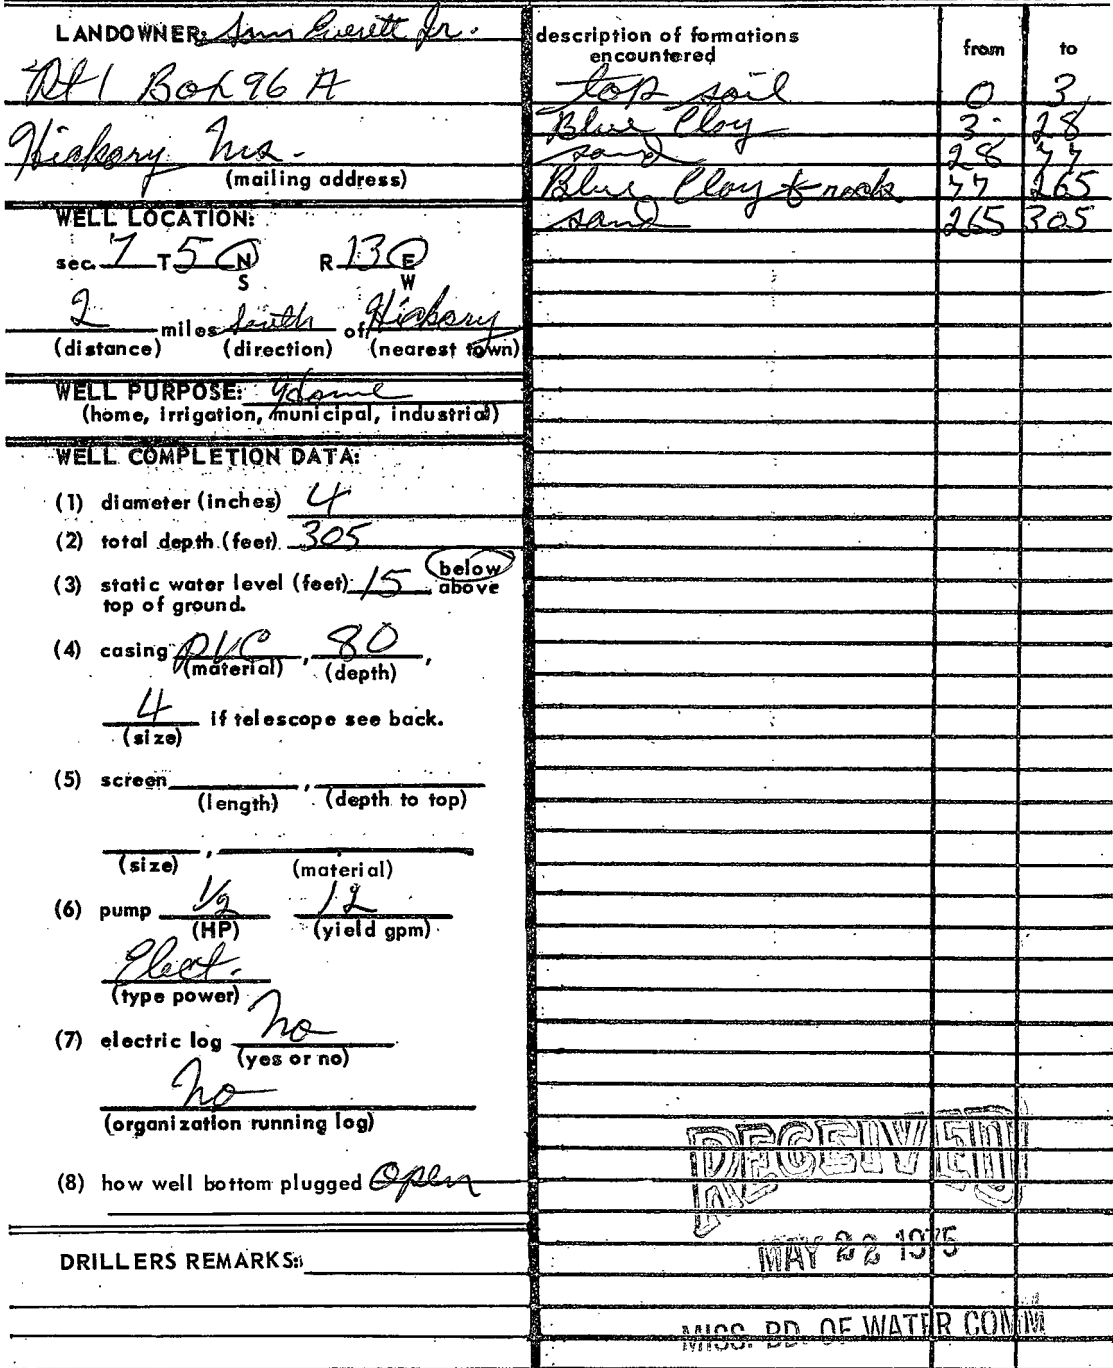 LANDOWNER: Everett Jr.
Rt 1 Box 96 A
Hickory Ms.
(mailing address)
WELL LOCATION:
sec. 7 T 5 N R 13 E
S W
2 miles South of Hickory
(distance) (direction) (nearest town)
WELL PURPOSE: Home
(home, irrigation, municipal, industrial)
WELL COMPLETION DATA:
(1) diameter (inches) 4
(2) total depth (feet) 305
(3) static water level (feet) 15 below
above
top of ground.
(4) casing PVC, 80,
(material) (depth)
4 if telescope see back.
(size)
(5) screen ,
(length) (depth to top)
,
(size) (material)
(6) pump 1/2 12
(HP) (yield gpm)
Elect.
(type power)
(7) electric log no
(yes or no)
no
(organization running log)
(8) how well bottom plugged Open
DRILLERS REMARKS:
description of formations
encountered from to
top soil 0 3
Blue Clay 3 28
sand 28 77
Blue Clay & rock 77 265
sand 265 305
RECEIVED
MAY 22 1975
MISS. BD. OF WATER COMM